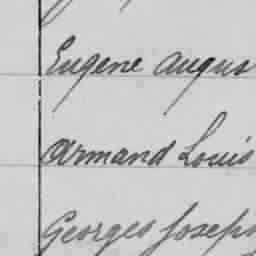 Eugene Augus
Armand Louis
Georges Joseph